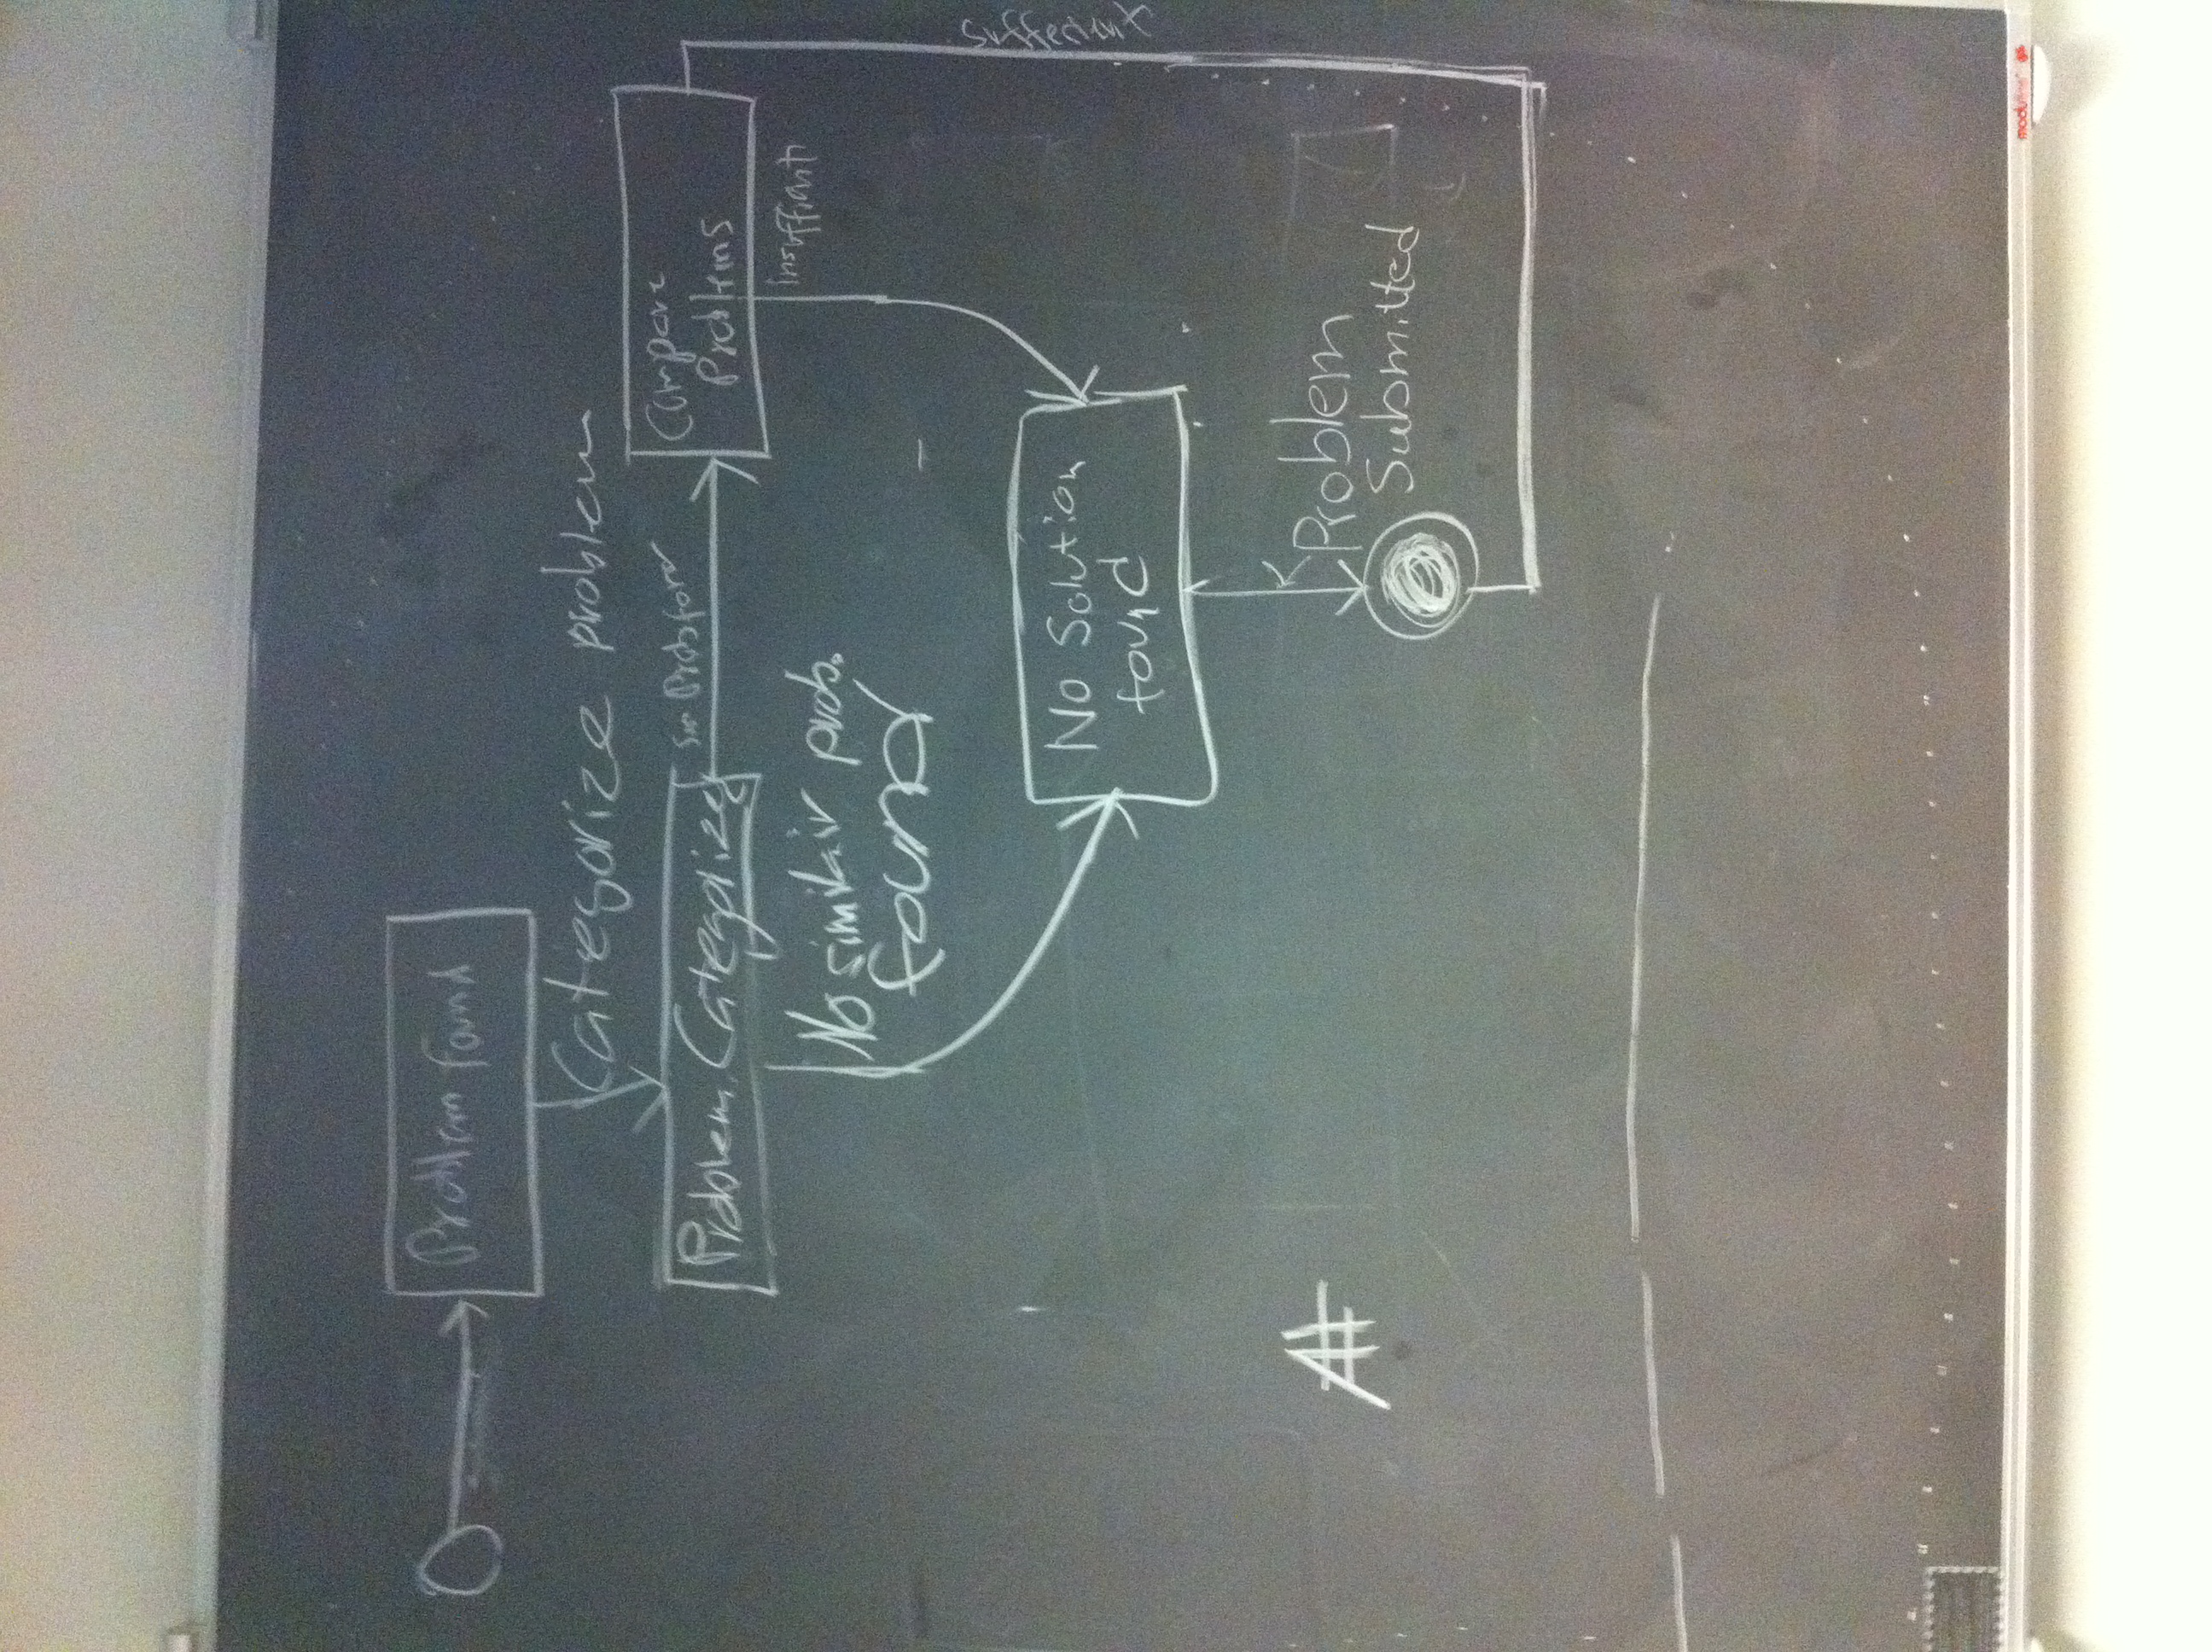 Problem Found
Categorize problem
Problem Categorized
Sim Prob found
Compare
Problems
No similair prob.
found
insufficient
No Solution
found
Problem
Submitted